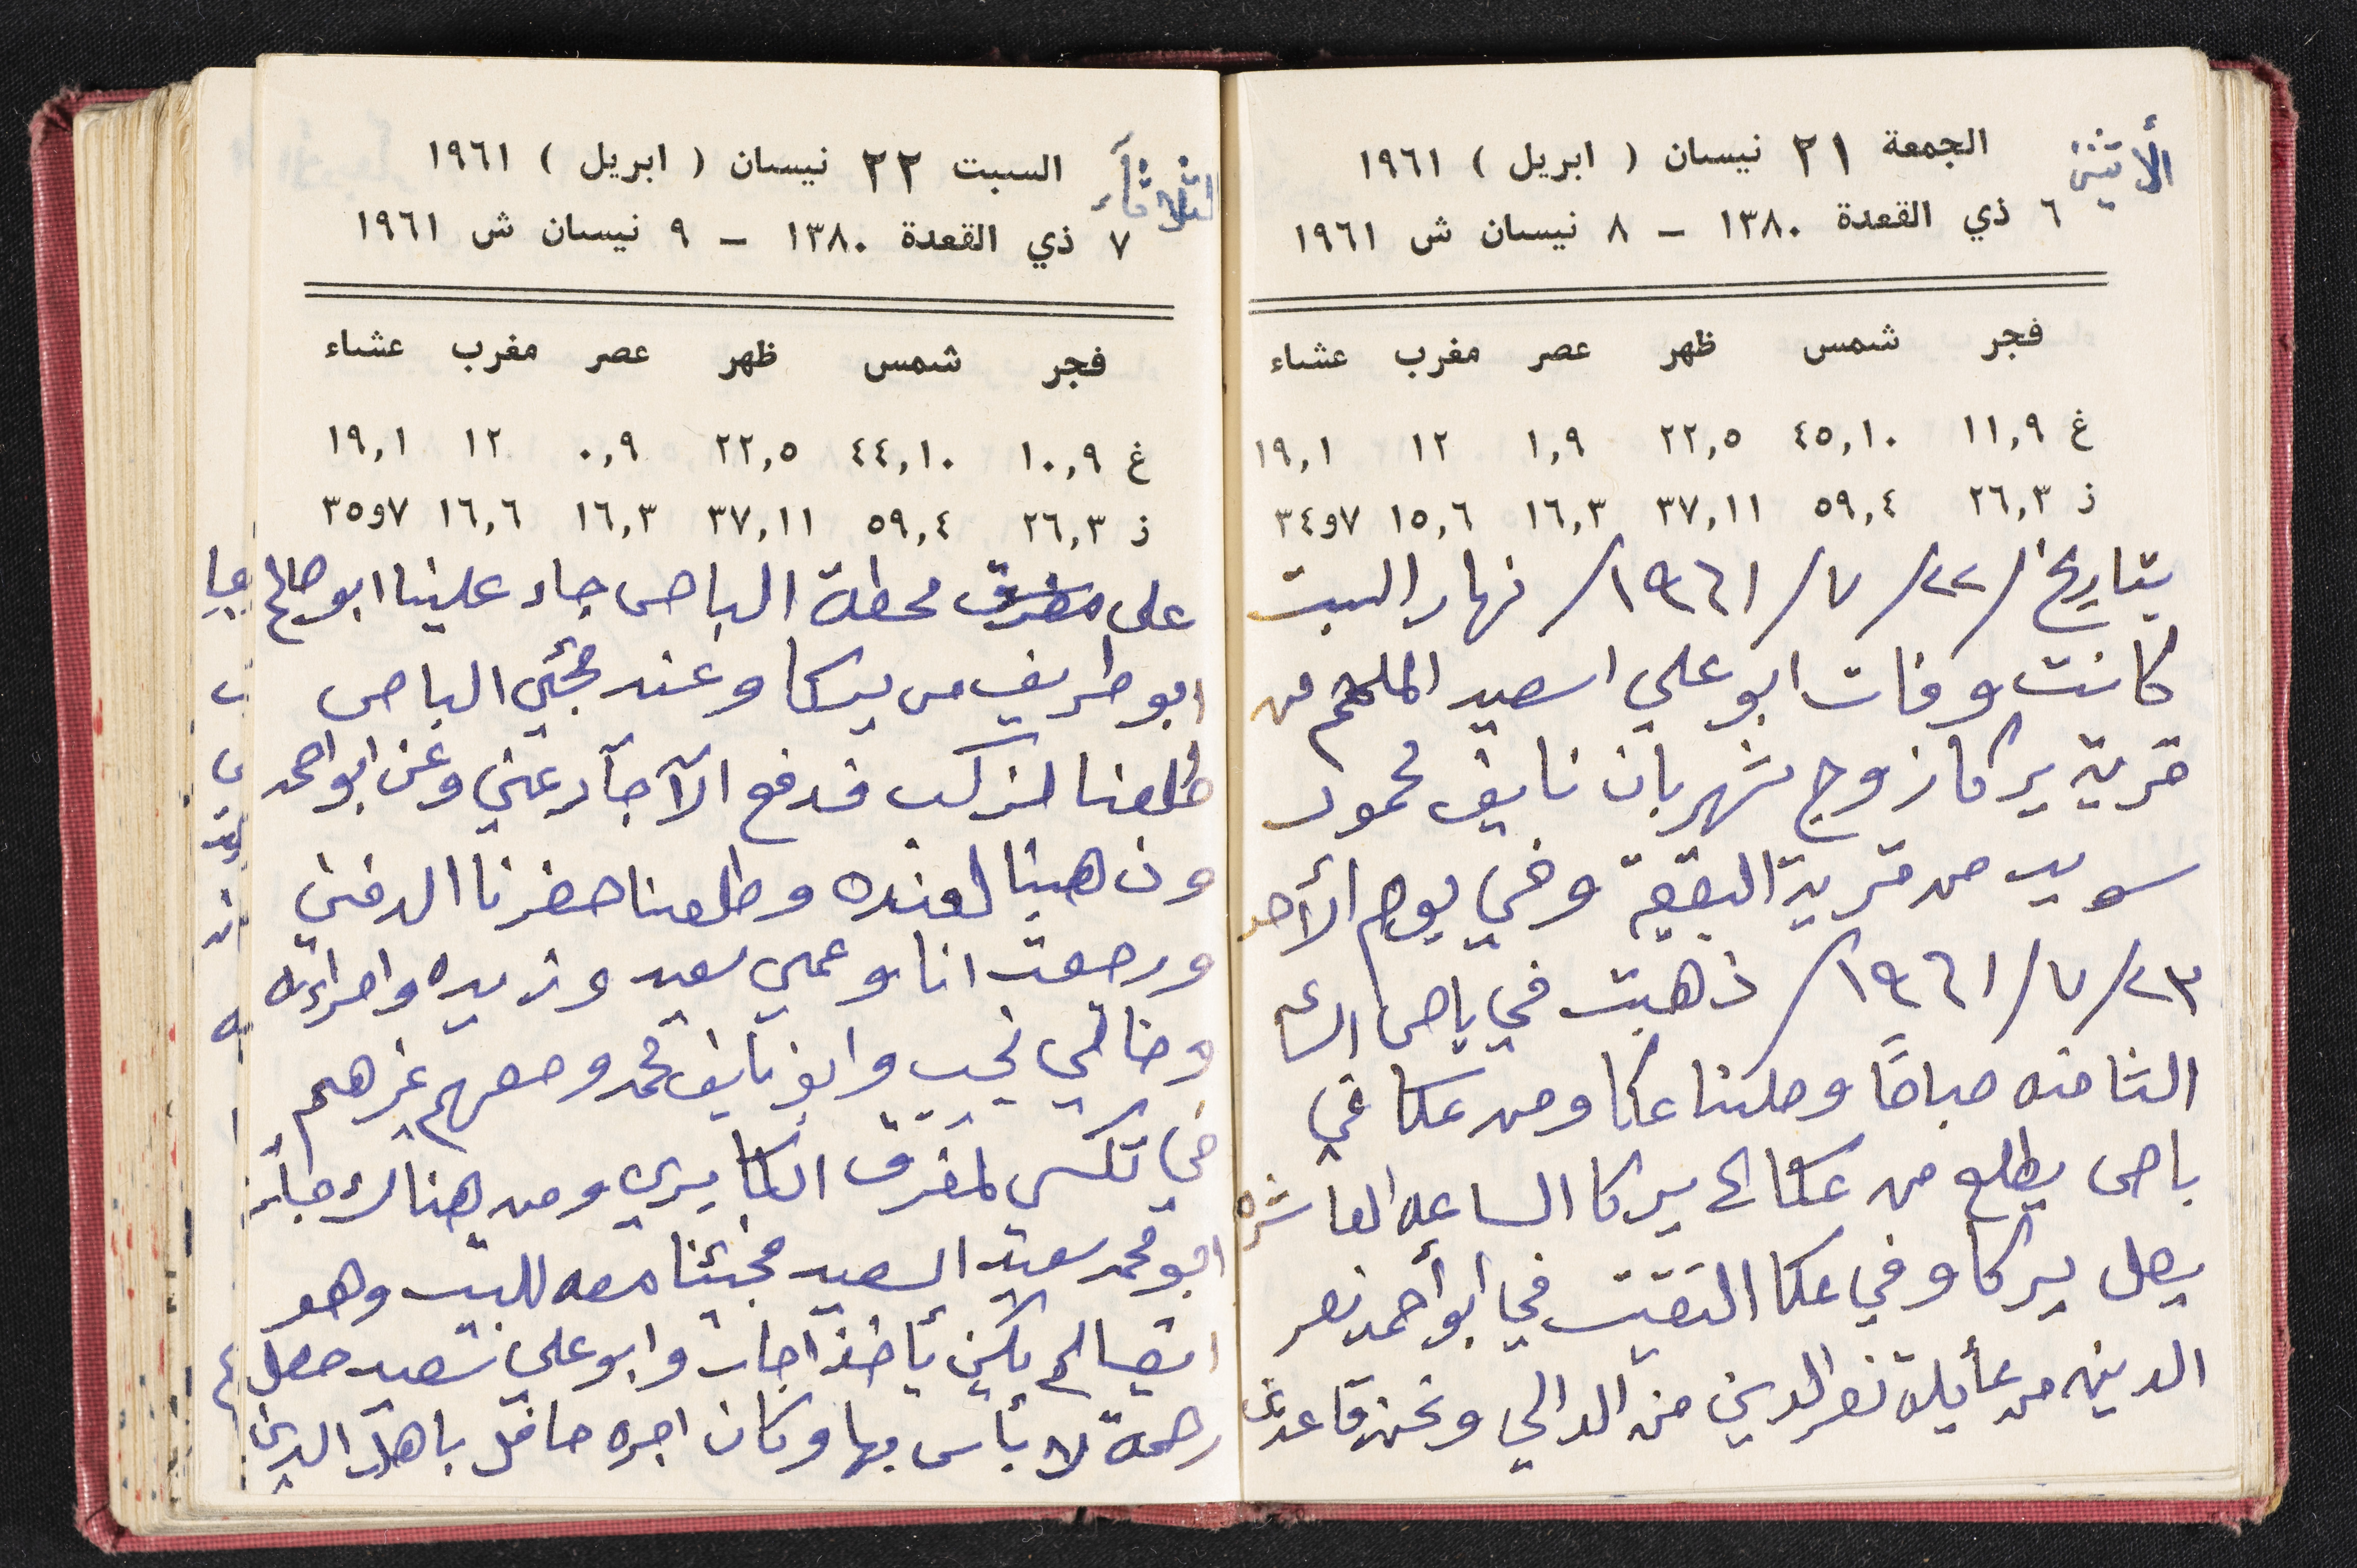 الأثنين
الجمعة ٢١ نيسان ( ابريل ) ١٩٦١
٦ ذي القعدة ١٣٨٠ – ٨ نيسان ش ١٩٦١
فجر شمس ظهر عصر مغرب عشاء
غ ١١,٩ ٤٥,١٠ ٢٢,٥ ١,٩ ١٢ ١٩,١
ز ٢٦,٣ ٥٩,٤ ٣٧,١١ ١٦,٣ ١٥,٦ ٧و٣٤
بتاريخ /٢٢/٧/١٩٦١/ نهار السبت
كانت وفات ابو علي اسعيد الملحم من
قرية يركا زوج شهربان نايف محمود
سويد من قرية البقيعة وفي يوم الأحد
٢٣/٧/١٩٦١/ ذهبت في باص الساعه
الثامنه صباحًا وصلنا عكا ومن عكا في
باص يطلع من عكا الى يركا الساعه العاشره
يصل يركا وفي عكا التقيت في أبو أحمد نصر
الدين من عأيلة نصر الدين من الدالي ونحن قاعدين
الثلاثاء
السبت ٢٢ نيسان ( ابريل ) ١٩٦١
٧ ذي القعدة ١٣٨٠ – ٩ نيسان ش ١٩٦١
فجر شمس ظهر عصر مغرب عشاء
غ ١٠,٩ ٤٤,١٠ ٢٢,٥ ٠,٩ ١٢ ١٩,١
ز ٢٦,٣ ٥٩,٤ ٣٧,١١ ١٦,٣ ١٦,٦ ٧و٣٥
على محطة الباص جاء علينا ابو صالح
ابو طريف من يركا وعند مجئي الباص
طلعنا لنركب فدفع الآجآر عني وعن ابو احمد
وذهبنا لعنده وطلعنا حضرنا الدفن
ورجعت انا وعمي سعيد وزيده وامراءته
وخالي نجيب وابو نايف محمد ومعهم غرهم
في تكسي لمفرق الكابري ومن هناك جاء
ابو محمد سعيد السعيد فجئنا معه للبيت وهو
ايضا لم يكن يأخذ اجات وابو علي سعيد حصل
رحمة لا بأس بها وكان اجره حافل باهل الدين